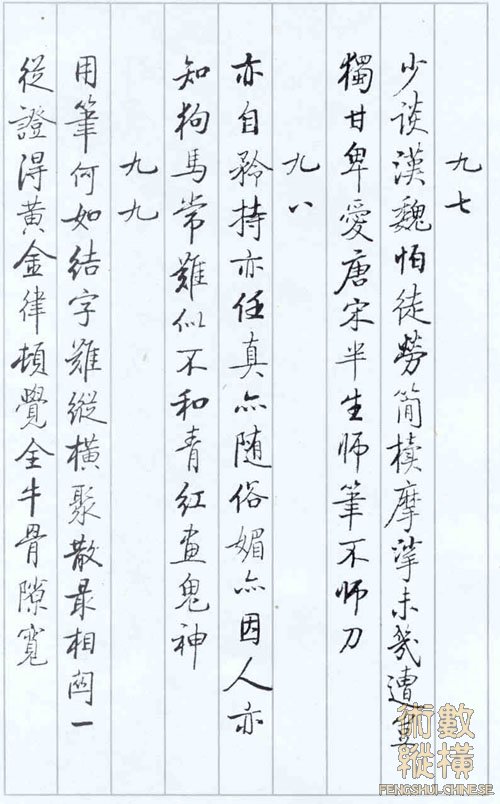 九七
少談漢魏怕徒勞簡牘摩挲未幾遭豈
獨甘卑愛唐宋半生师筆不师刀
九八
亦自矜持亦任真亦随俗媚亦因人亦
知狗馬常難似不和青紅畫鬼神
九九
用筆何如結字難縱橫聚散最相關一
從證得黃金律頓覺全牛骨隙寬
術數
縱橫
FENGSHUI-CHINESE